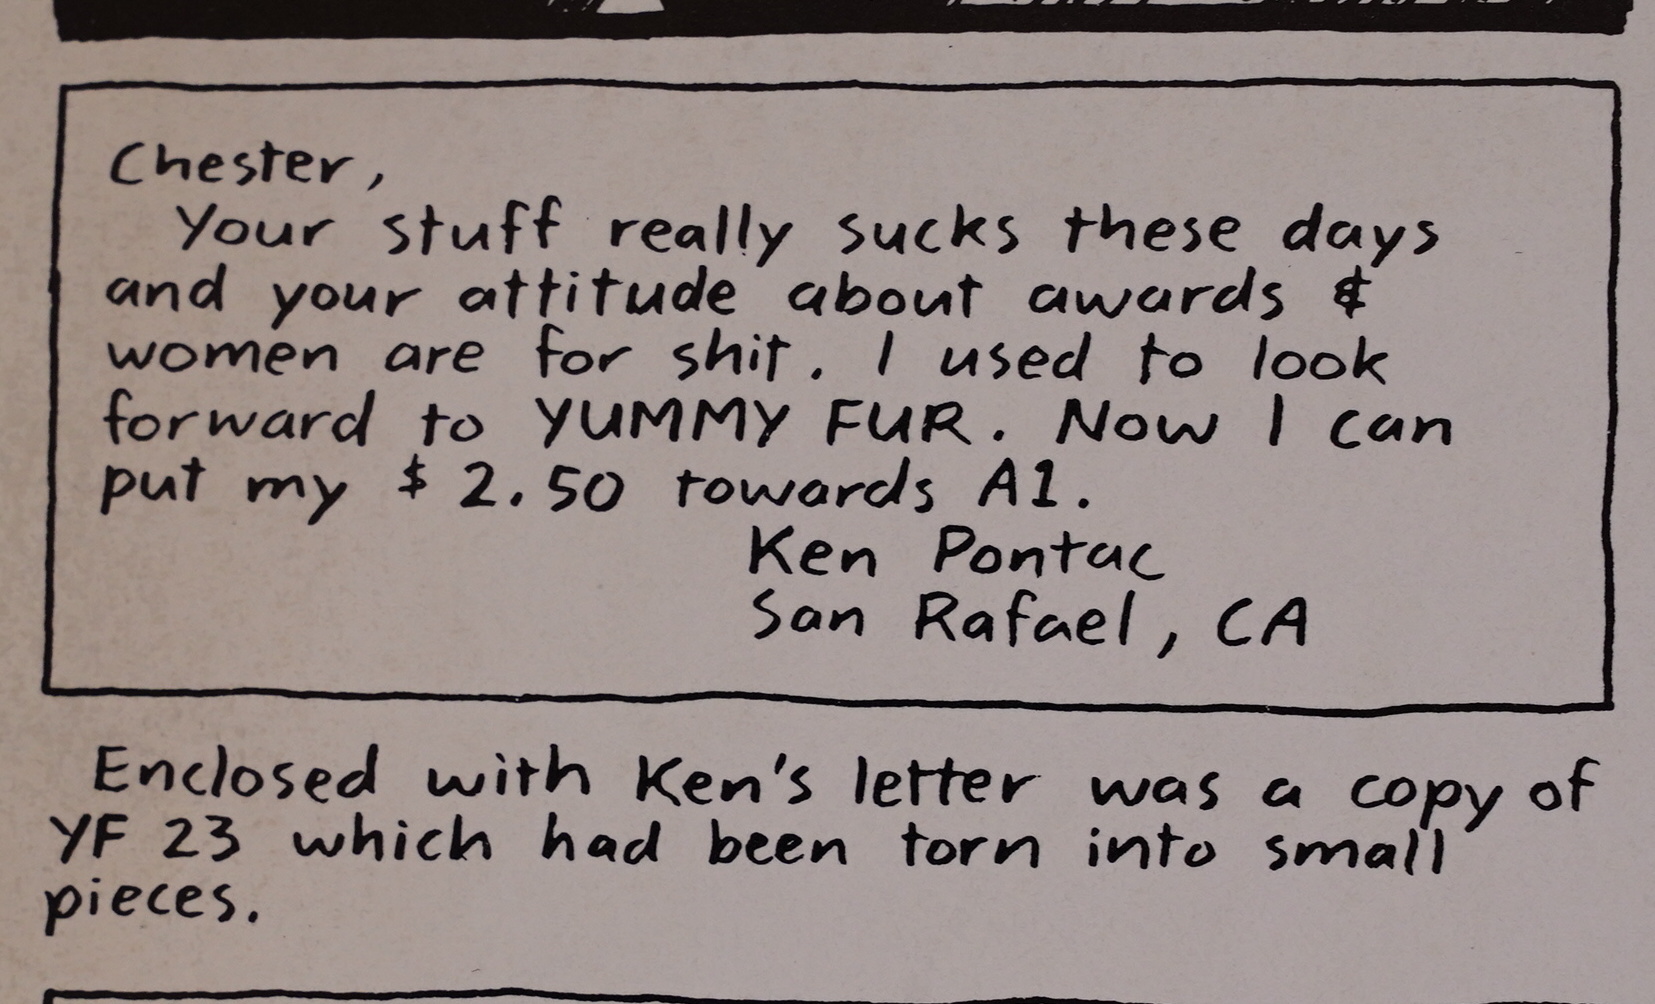 Chester,
Your stuff really sucks these days
and your attitude about awards &
women are for shit. I used to look
forward to YUMMY FUR. Now I can
put my $2.50 towards A1.
Ken Pontac
San Rafael, CA
Enclosed with Ken's letter was a copy of
YF 23 which had been torn into small
pieces.